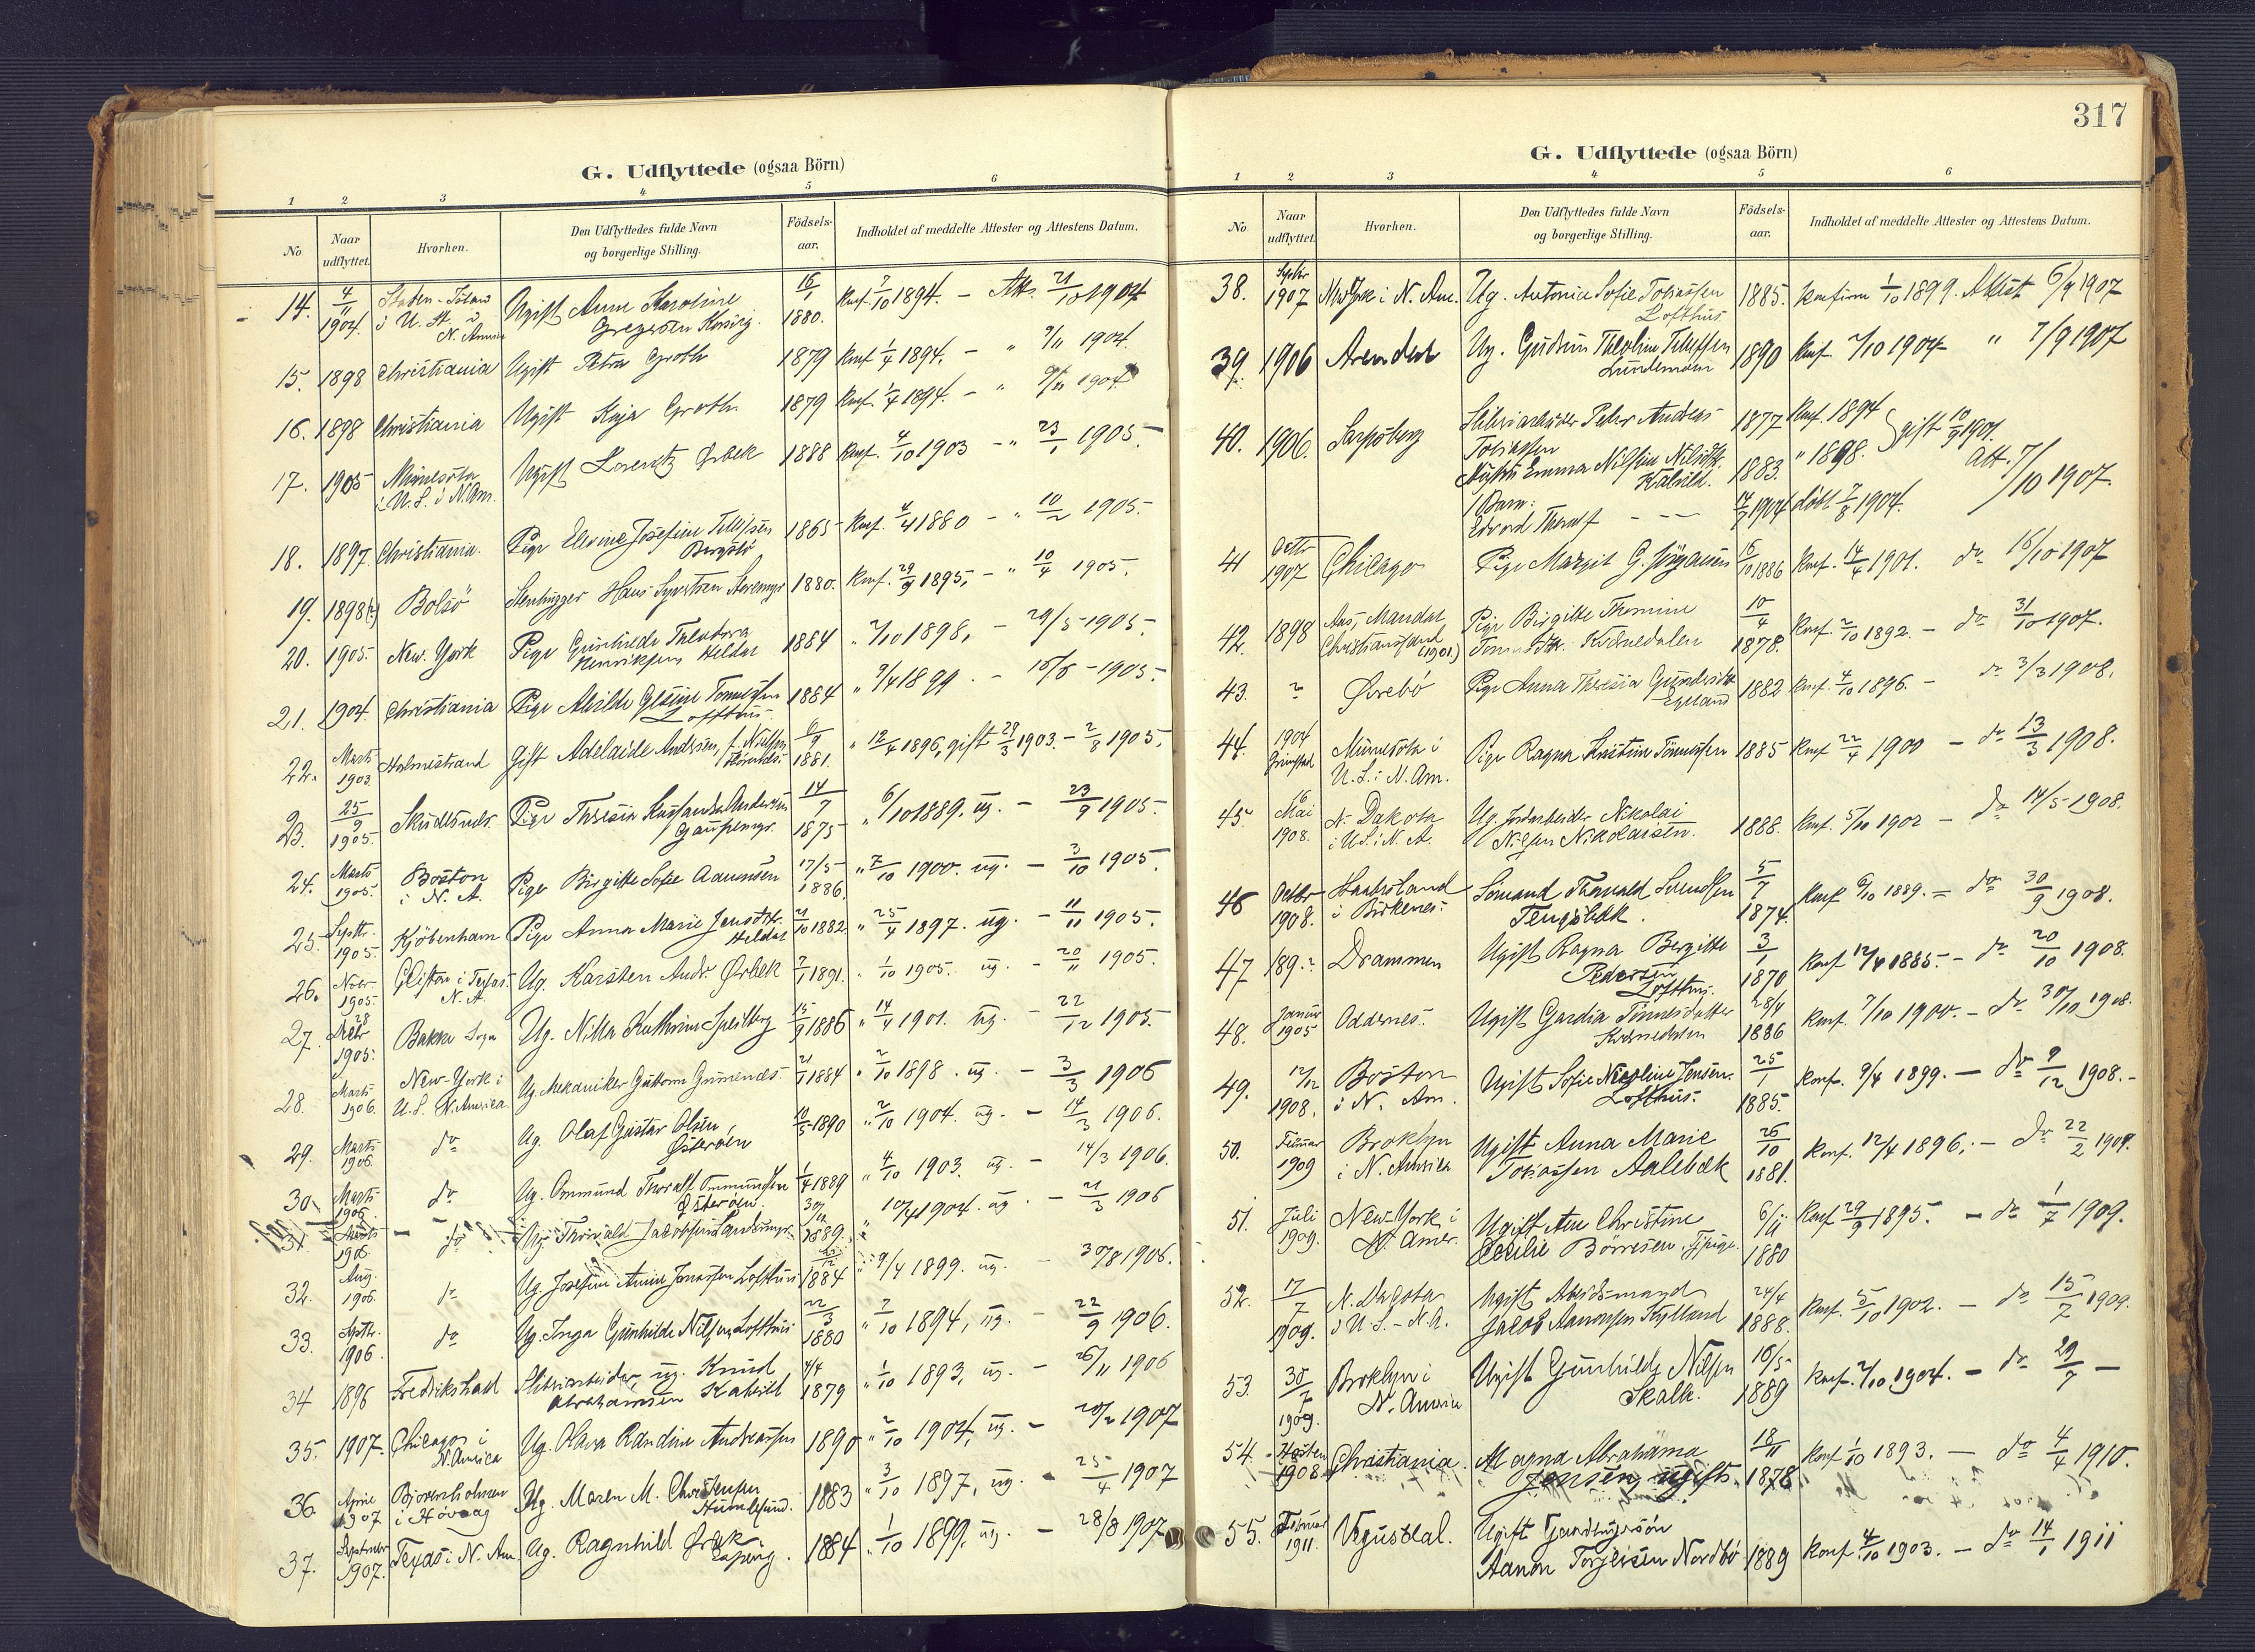 G. Udflyttede (ogsaa Börn)
1 2 3 4 5 6
No
Naar udflyttet.
Hvorhen.
Den Udflyttedes fulde Navn og borgerlige Stilling.
Födsels-aar.
Indholdet af meddelte Attester og Attestens Datum.
14. 4/11 1904. Staten-Island i U. St. i N. America Ugift Anne Karoline Gregersen 16/1 1880. Konf. 7/10 1894. – Att. 21/10 1904
15. 1898 Christiania Ugift Petra Groth 1879 Konf. 1/4 1894. – " 9/11 1904.
16. 1898 Christiania Ugift Kaja Groth 1879 Konf. 1/4 1894. – " 9/11 1904
17. 1905 Minnesota i U. S. i N. Am. Ugift Lorentz Ørbek 1888 Konf. 4/10 1903 – " 23/1 1905.
18. 1897 Christiania. Pige Elevine Josefine Tellefsen 1865 Konf. 4/4 1880 – " 10/2 1905.
19. 1898(?) Bolsö Stenhugger Hans Syvertsen 1880. Konf. 29/9 1895, – " 10/4 1905.
20. 1905. New-York Pige Gunhilde Theodora Henriksen Heldal 1884 " 2/10 1898, – 29/5 1905.
21. 1904. Christiania Pige Alvilde Tomassen Lofthus. 1884 " 9/4 1899 – 15/6 – 1905.
22. Marts 1903. Holmestrand Gift Adelaide Andersen, f. Nielsen 6/9 1881. " 12/4 1896, gift 29/3 1903. – 2/8 1905.
23. 25/9 1905. Skudesnes. Pige Theresia Andersen 14/7 1875 " 6/10 1889, ug. – 23/9 1905.
24. Marts 1905. Boston i N. A. Pige Birgitte Sofie Aanensen 17/5 1886. " 7/10 1900. ug. – 3/10 1905.
25. Septbr. 1905. Kjöbenhavn Pige Anna Marie Jensdtr. Heldal 21/10 1882 " 25/4 1897. ug. – 11/11 1905.
26. Novbr. 1905. Clifton i Texas. N. A. Ug. Karsten Andr. Ørbek 7/1 1891. " 1/10 1905. ug. – 20/11 1905.
27. 28 Decbr 1905. Bakke Sogn Ug. Nilla Kathrine 15/9 1886 " 14/4 1901. ug. – 22/12 1905.
28. Marts 1906. New-York i U. S. N. America. Ug. Mekaniker Guttorm 21/1 1884 " 2/10 1898. ug. – 3/3 1906
29. Marts 1906. do Ug. Olaf Gustav Olsen, Østeröen 10/5 1890 " 2/10 1904. ug. – 14/3 1906.
30. Marts 1906. do Ug. Ommund Thoralf Ommundsen Østeröen. 1/4 1889 " 4/10 1903. ug. – 14/3 1906.
31. Marts 1906. – do Ug. Thorvald Jakobsen 30/11 1889. " 10/4 1904. ug. – 21/3 1906
32. Aug. 1906. do Ug. Josefine Amine Jonassen Lofthus 1884 " 9/4 1899. ug. 30/8 1906.
33. Septbr. 1906. do Ug. Inga Gunhilde Nilsen Lofthus 22/3 1880 " 7/10 1894, ug. – 22/9 1906.
34 1896 Fredrikstad Sliberiarbeider, ug. Knud Abrahamsen Kalvild 4/4 1879 " 1/10 1893, ug. – 26/11 1906
35. 1907. Chicago i N. America Ug. Olava Randine Andreassen 1890 " 2/10 1904, ug. – 20/2 1907
36. April 1907 i Hövaag Ug. Maren M. Christensen 1883 " 3/10 1897, ug. – 25/4 1907
37. September 1907. Texas i N. Am. Ug. Ragnhild Ørbek 1884 " 1/10 1899, ug. – 28/8 1907
317
G. Udflyttede (ogsaa Börn)
1 2 3 4 5 6
No
Naar udflyttet.
Hvorhen.
Den Udflyttedes fulde Navn og borgerlige Stilling.
Födsels-aar.
Indholdet af meddelte Attester og Attestens Datum.
38. Septbr 1907 New York i N. Am. Ug. Antonie Sofie Tobiassen Lofthus 1885. Konfirm 1/10 1899. Attest 6/9 1907
39. 1906 Arendal Ug. Gudrun Tellefsen Lundemoen 1890 Konf. 2/10 1904 " 7/9 1907
40. 1906. Sarpsborg Sliberiarbeider Peter Andreas Tobiassen 1877 Konf. 1894
Hustru Emma Nilsine Nilsdtr. Kalvild. 1883. " 1898. } gift 10/9 1901. Att. 7/10 1907.
1 Barn: Edvard Thoralf – – 17/7 1904 döbt 7/8 1904.
41 Octbr 1907 Chicago Pige Margit G. Jörgensen 16/10 1886 Konf. 14/4 1901. do 16/10 1907
42. 1898 Aas, Mandal Christianssand (1901.) Pige Birgitte Thomine 10/4 1878. Konf. 2/10 1892. – do 31/10 1907.
43. ? Øvrebö Pige Anna Theresia Gundersdtr. 1882 Konf. 4/10 1896. – do 3/3 1908.
44. 1904 Grimstad Minnesota i U. S. i N. Am. Pige Ragna Kristine Tönnesen 1885 Konf 22/4 1900 – do 13/3 1908.
45. 16 Mai 1908. N. Dakota i U. S. i N. A. Ug. Jordarbeider Nikolai Nilsen Nikolaisen. 1888. Konf. 5/10 1902 – do 14/5 1908.
46 Octbr 1908. i Birkenes. Thorvald 5/7 1874. Konf 6/10 1889. – do 30/9 1908.
47 189.? Drammen Ugift Ragna Bergitte Pedersen Lofthus. 3/1 1870 Konf 12/4 1885. – do 20/10 1908.
48. Januar 1905 Oddernes. Ugift Gardia Tönnesdatter 28/4 1886 Konf. 7/10 1900. – do 30/10 1908.
49. 12/12 1908. Boston i N. Am. Ugift Sofie Nicoline Jensen. Lofthus. 25/1 1885. Konf. 9/4 1899. – do 9/12 1908. –
50. Februar 1909 Broklyn i N. America Ugift Anna Marie Tobiassen Aalebæk 26/10 1881. Konf. 12/4 1896. – do 22/2 1909.
51. Juli 1909. New-York i N. Amer. Ugift Ane Christine Cecilie Börresen, 6/11 1880 Konf 29/9 1895. – do 1/7 1909.
52. 17/7 1909. N. Dacota i U. S. – N. A. Ugift Arbeidsmand Jacob Aanonsen 24/4 1888. Konf. 5/10 1902. – do 15/7 1909.
53. 30/7 1909. Broklyn i N. America Ugift Gunhilde Nilsen Skalle. 16/5 1889 Konf. 2/10 1904. – do 29/7 –
54. Hösten 1908 Christiania. Magna Abrahama Jensen, ugift. 18/11 1878 Konf 1/10 1893. – do 4/4 1910.
55. Februar 1911. Vegusdal. Ugift Gaardbrugersön Aanon Torjeisen Nordbö 1889 Konf. 4/10 1903. – do 14/1 1911